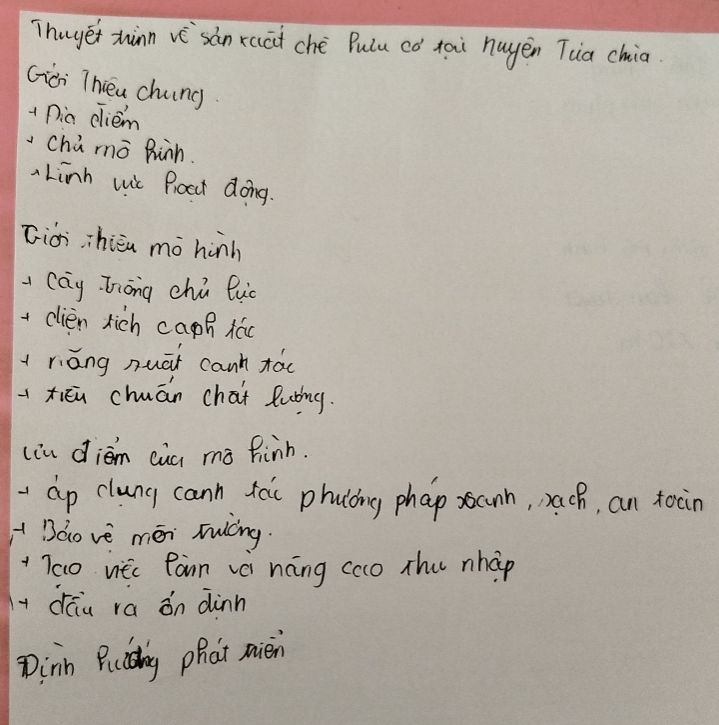 Thuyết trình về sản xuất chè hữu cơ tại huyện Tủa chùa.
Giới Thiệu chung.
+ Địa điểm
+ Chủ mô hình.
+ Lĩnh vực hoạt động.
Giới thiệu mô hình
+ Cây trồng chủ lực
+ diện tích canh tác
+ năng suất canh tác
+ tiêu chuẩn chất lượng.
ưu điểm của mô hình.
+ áp dụng canh tác phương pháp xanh, sạch, an toàn
+ Bảo vệ môi trường.
+ Tạo việc làm và nâng cao thu nhập
+ đầu ra ổn định
Định hướng phát triển